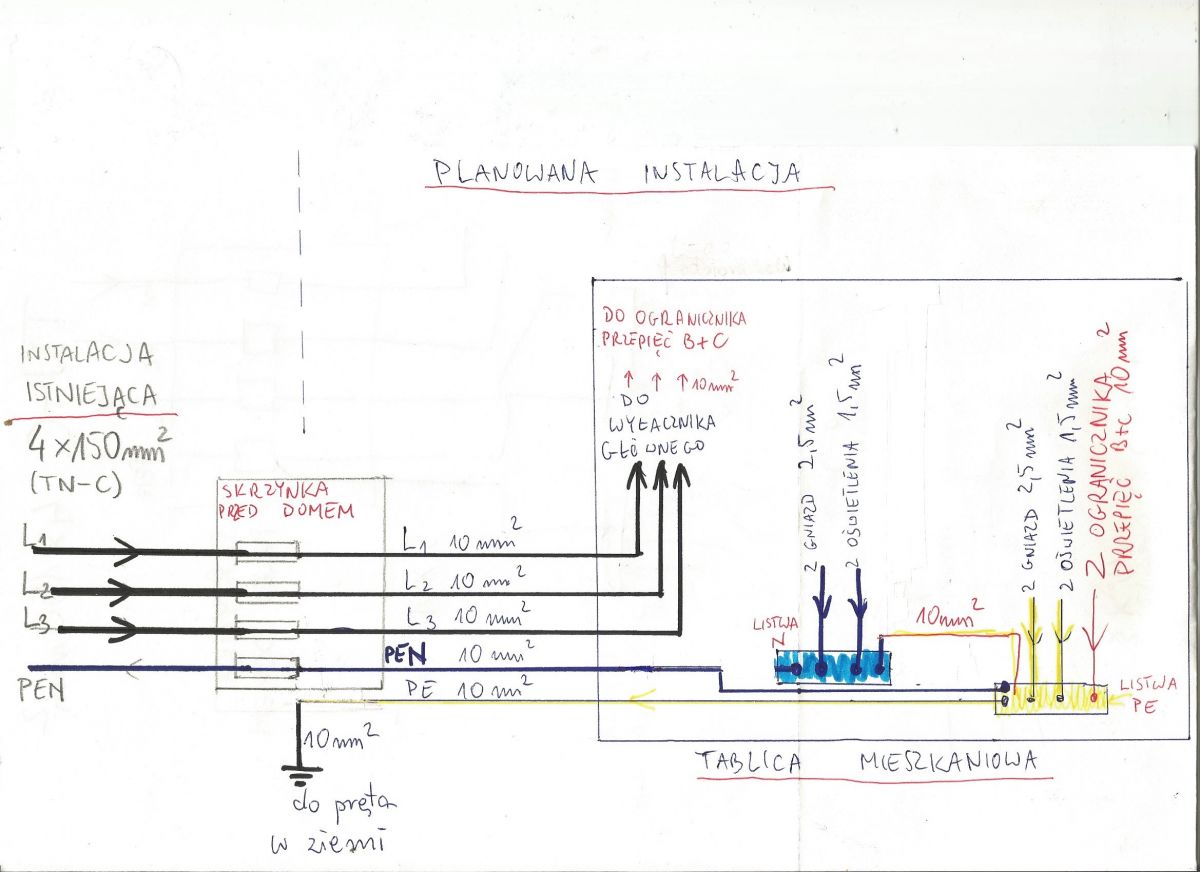 PLANOWANA INSTALACJA
INSTALACJA
ISTNIEJĄCA
4 × 150mm²
(TN-C)
SKRZYNKA
PRZED DOMEM
L1
L2
L3
PEN
L1 10 mm²
L2 10 mm²
L3 10 mm²
PEN 10 mm²
PE 10 mm²
10mm²
do pręta
w ziemi
DO OGRANICZNIKA
PRZEPIĘĆ B+C
10mm²
DO
WYŁĄCZNIKA
GŁÓWNEGO
Z GNIAZD 2,5mm²
Z OŚWIETLENIA 1,5mm²
LISTWA
N
10mm²
Z GNIAZD 2,5mm²
Z OŚWIETLENIA 1,5mm²
Z OGRANICZNIKA
PRZEPIĘĆ B+C 10mm²
LISTWA
PE
TABLICA MIESZKANIOWA